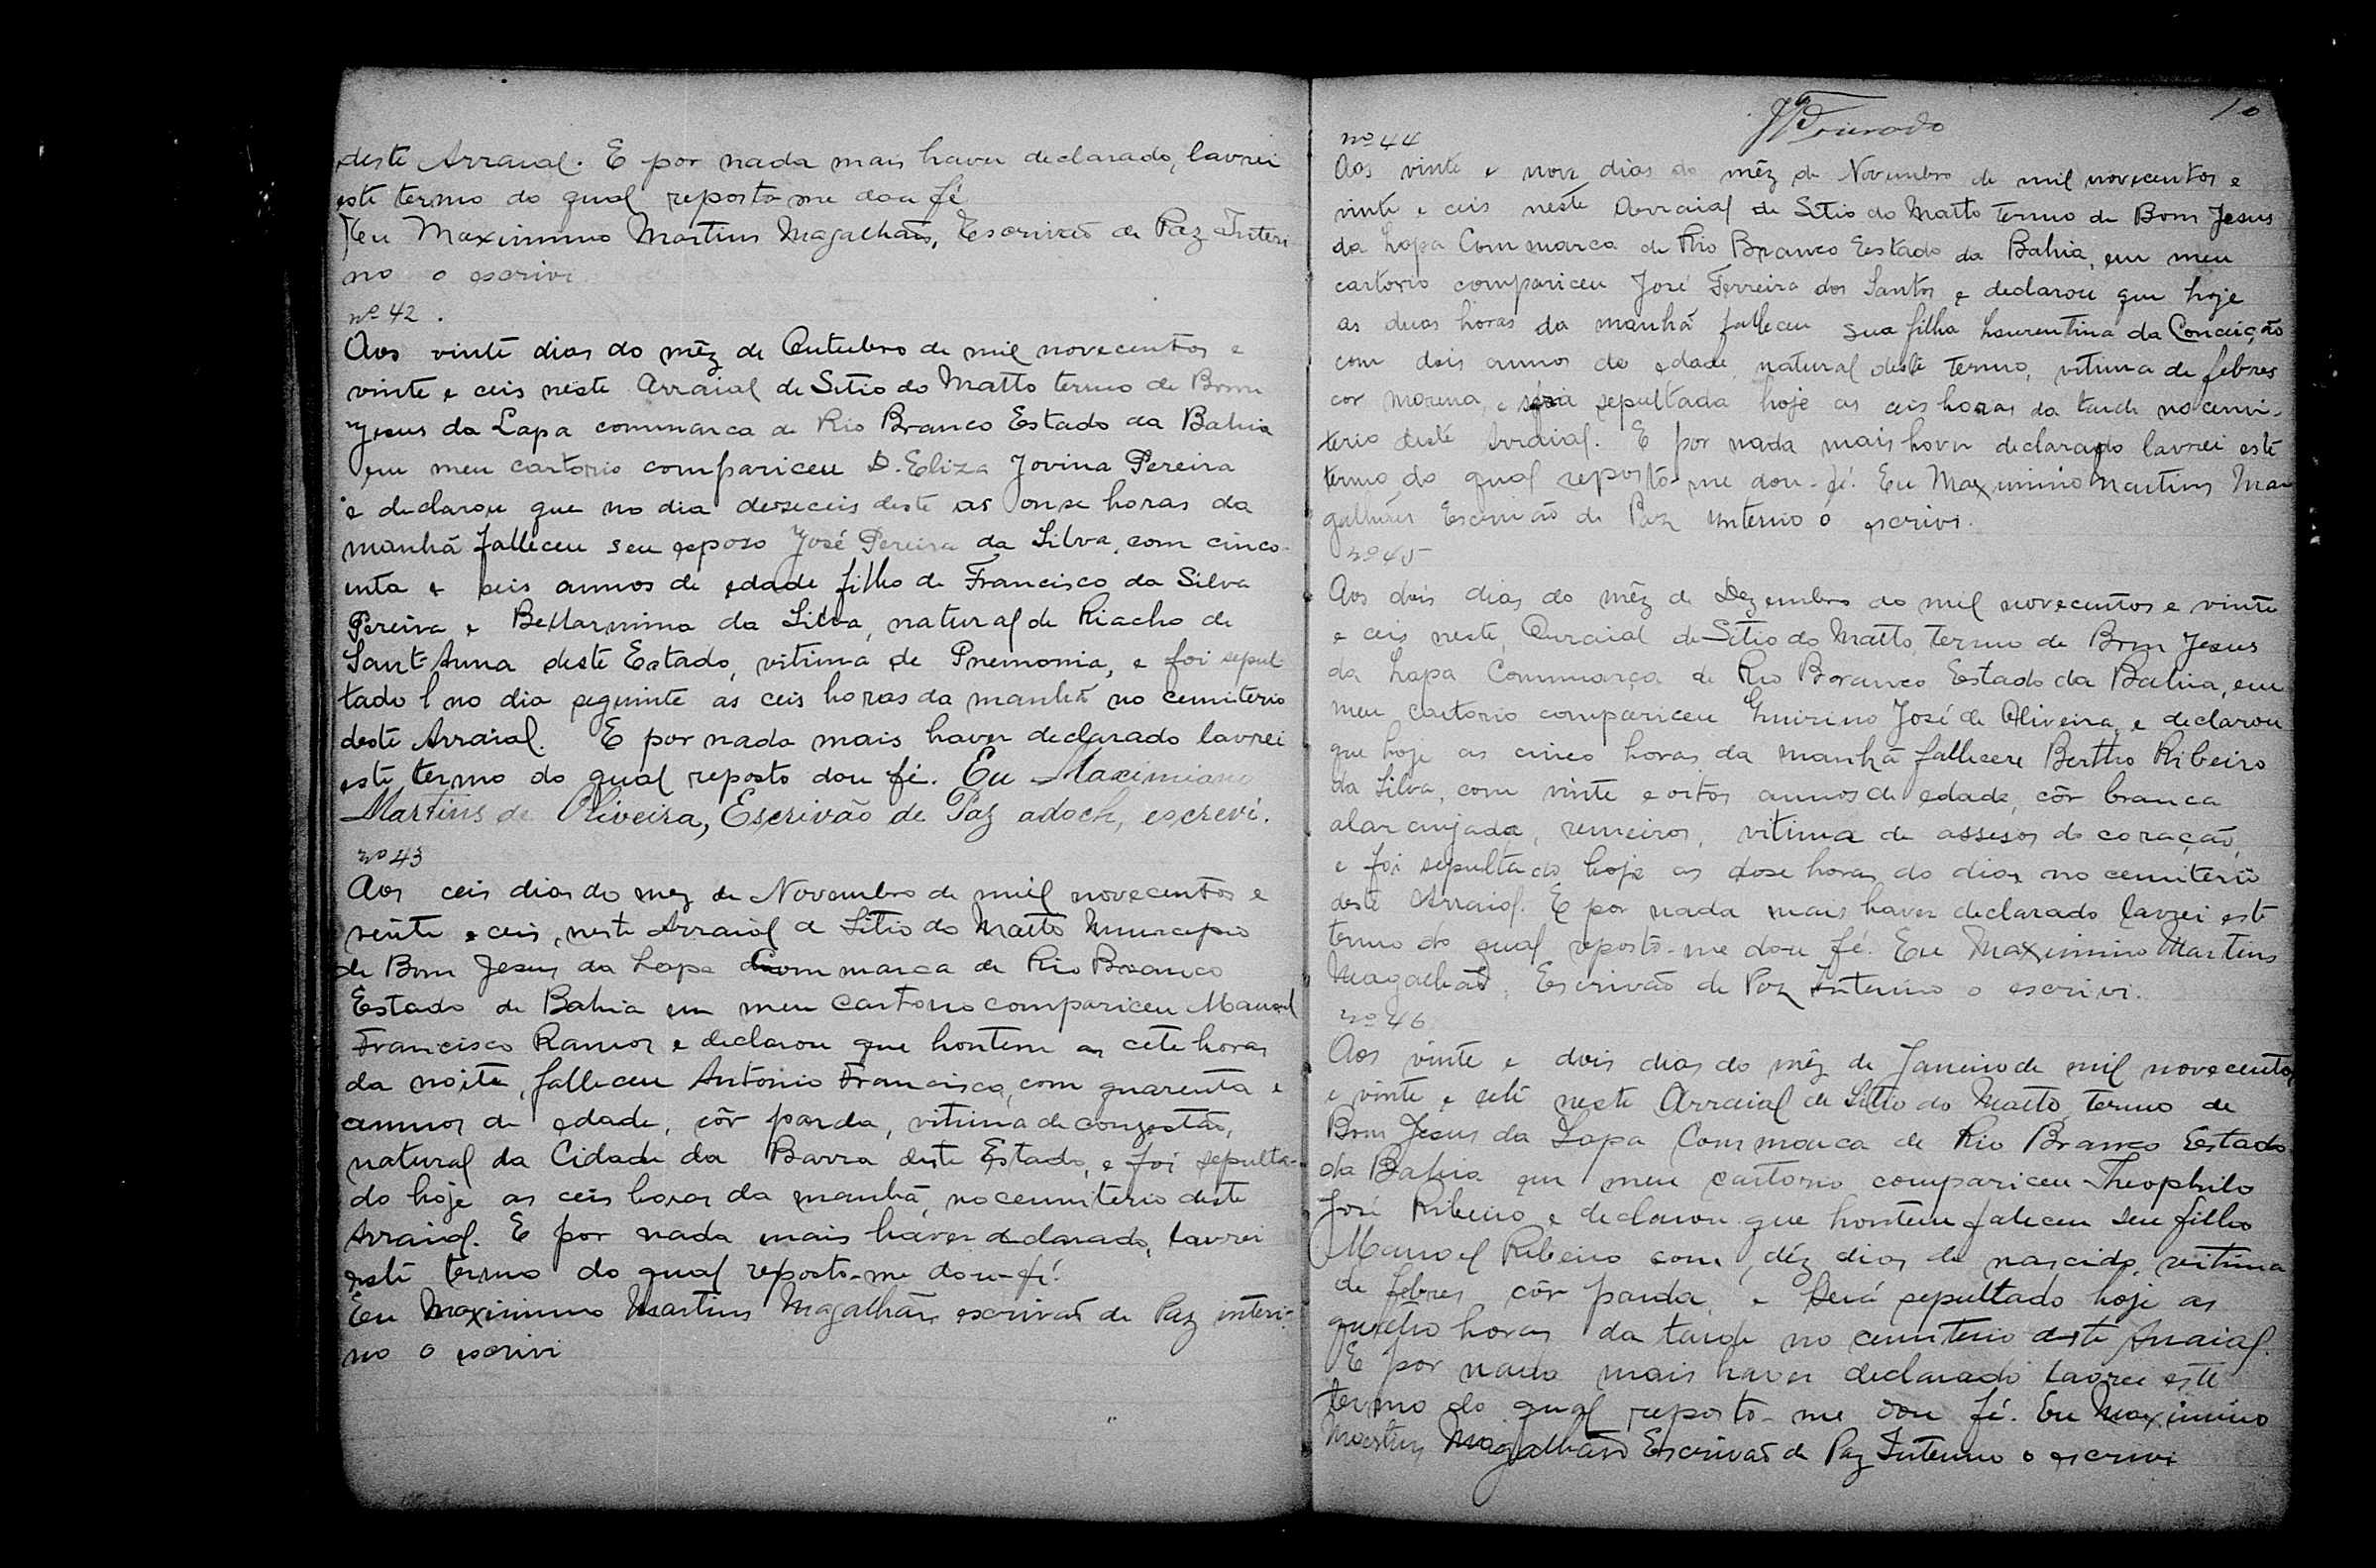 deste Arraial. E por nada mais haver declarado, lavrei
este termo do qual reposto me dou fé
Eu Maximino Martins Magalhães, Escrivão de Paz Interi
no o escrivi
nº 42.
Aos vinte dias do mêz de Outubro de mil novecentos e
vinte e ceis neste Arraial de Sitio do Matto termo de Bom
Jesus da Lapa commarca de Rio Branco Estado da Bahia
em meu cartorio compariceu D. Eliza Jovina Pereira
e declarou que no dia dezeceis deste as onse horas da
manhã falleceu seu esposo José Pereira da Silva, com cinco-
enta e seis annos de edade filho de Francisco da Silva
Pereira e Bellarmina da Silva, natural de Riacho de
Sant-Anna deste Estado, vitima de Pnemonia, e foi sepul
tado no dia seguinte as ceis horas da manhã no cemiterio
deste Arraial. E por nada mais haver declarado lavrei
este termo do qual reposto dou fé. Eu Maximiano
Martins de Oliveira, Escrivão de Paz adoch, escreví.
nº 43
Aos ceis dias do mez de Novembro de mil novecentos e
vinte e ceis, neste Arraial de Sitio do Matto Municipio
de Bom Jesus da Lapa Commarca de Rio Branco
Estado de Bahia em meu Cartorio compariceu Manoel
Francisco Ramos e declarou que hontem as cete horas
da noite, falleceu Antonio Francisco, com quarenta e
annos de edade, côr parda, vitima de congestão,
natural da Cidade da Barra deste Estado, e foi sepulta-
do hoje as ceis horas da manhã, no cemiterio deste
Arraial. E por nada mais haver declarado, lavrei
este termo do qual reposto-me dou-fé.
Eu Maximino Martins Magalhães escrivão de Paz interi-
no o escrivi
10
Dourado
nº 44
Aos vinte e nove dias do mêz de Novembro de mil novecentos e
vinte e ceis neste Arraial de Sitio do Matto Termo de Bom Jesus
da Lapa Commarca de Rio Branco Estado da Bahia, em meu
cartorio compariceu José Ferreira dos Santos e declarou que hoje
as duas horas da manhã falleceu sua filha Laurentina da Conceição
com dois annos de edade, natural deste termo, vitima de febres
cor morena, e será sepultada hoje as ceis horas da tarde no cemi-
terio deste Arraial. E por nada mais haver declarado lavrei este
termo do qual reposto-me dou-fé. Eu Maximino Martins Ma
galhães Escrivão de Paz interino o escrivi.
nº 45
Aos dois dias do mêz de Dezembro do mil novecentos e vinte
e ceis neste, Arraial de Sitio do Matto, termo de Bom Jesus
da Lapa Commarca de Rio Branco Estado da Bahia, em
meu cartorio compariceu José de Oliveira, e declarou
que hoje as cinco horas da manhã fallecere Bertho Ribeiro
da Silva, com vinte e oitos annos de edade, côr branca
alaranjada, remeiros, vitima de assesos do coração,
e foi sepultado hoje as dose horas do dia, no cemiterio
deste Arraial. E por nada mais haver declarado lavrei este
termo do qual reposto-me dou fé. Eu Maximino Martins
Magalhães, Escrivão de Paz Interino o escrivi.
nº 46
Aos vinte e dois dias do mêz de Janeiro de mil novecentos
e vinte e sete neste Arraial de Sitio do Matto, termo de
Bom Jesus da Lapa Commarca de Rio Branco Estado
da Bahia em meu cartorio compariceu Theophilo
José Ribeiro e declarou que hontem faleceu seu filho
Manoel Ribeiro com, déz dias de nascido, vitima
de febres, côr parda, e será sepultado hoje as
quatro horas da tarde no cemiterio deste Arraial.
E por nada mais haver declarado lavrei este
termo do qual reposto-me dou fé. Eu Maximino
Martins Magalhães Escrivão de Paz Interino o escrivi